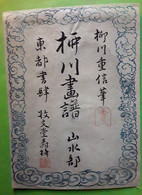 柳川重信筆
柳川畫譜 山水部
東都書肆 牧文堂壽梓